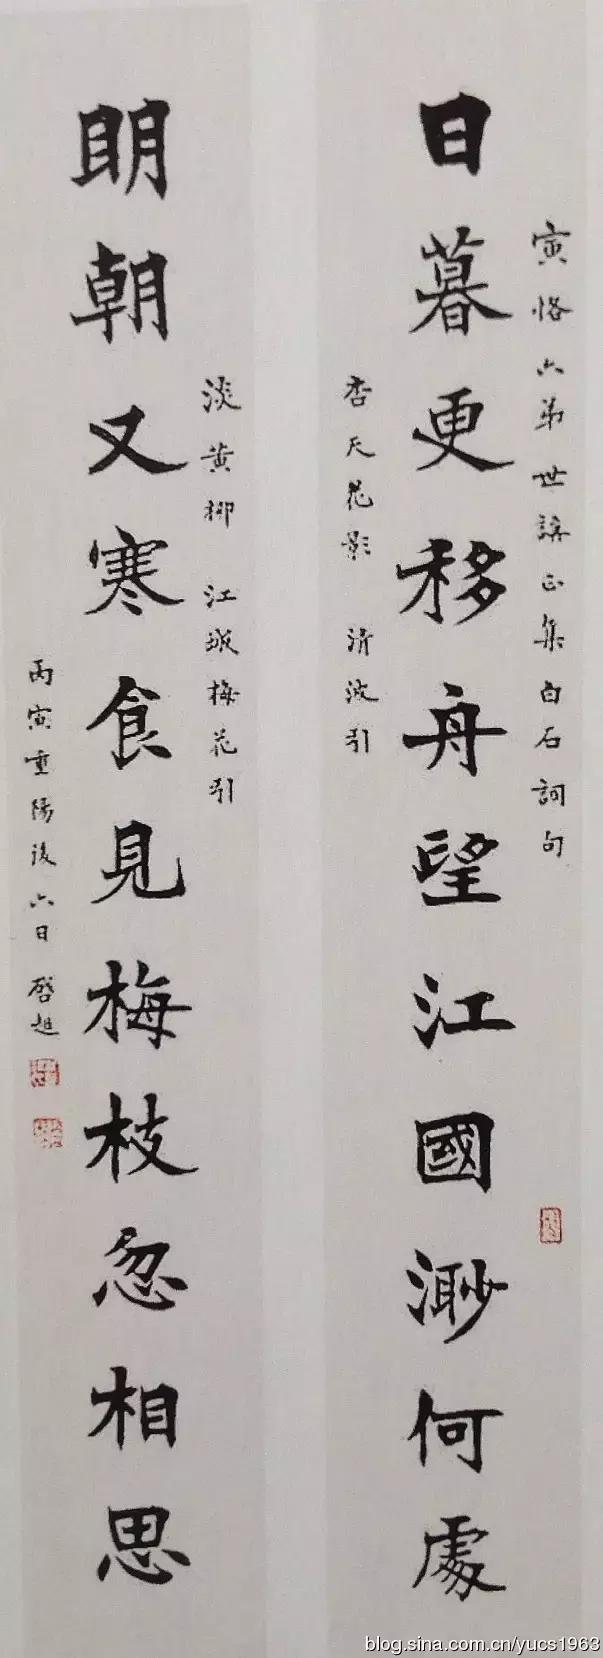 寅恪六弟世講正集白石詞句
日暮更移舟望江國渺何處
杏天花影 清波引
淡黃柳 江城梅花引
眀朝又寒食見梅枝忽相思
丙寅重陽後六日 啓超
blog.sina.com.cn/yucs1963